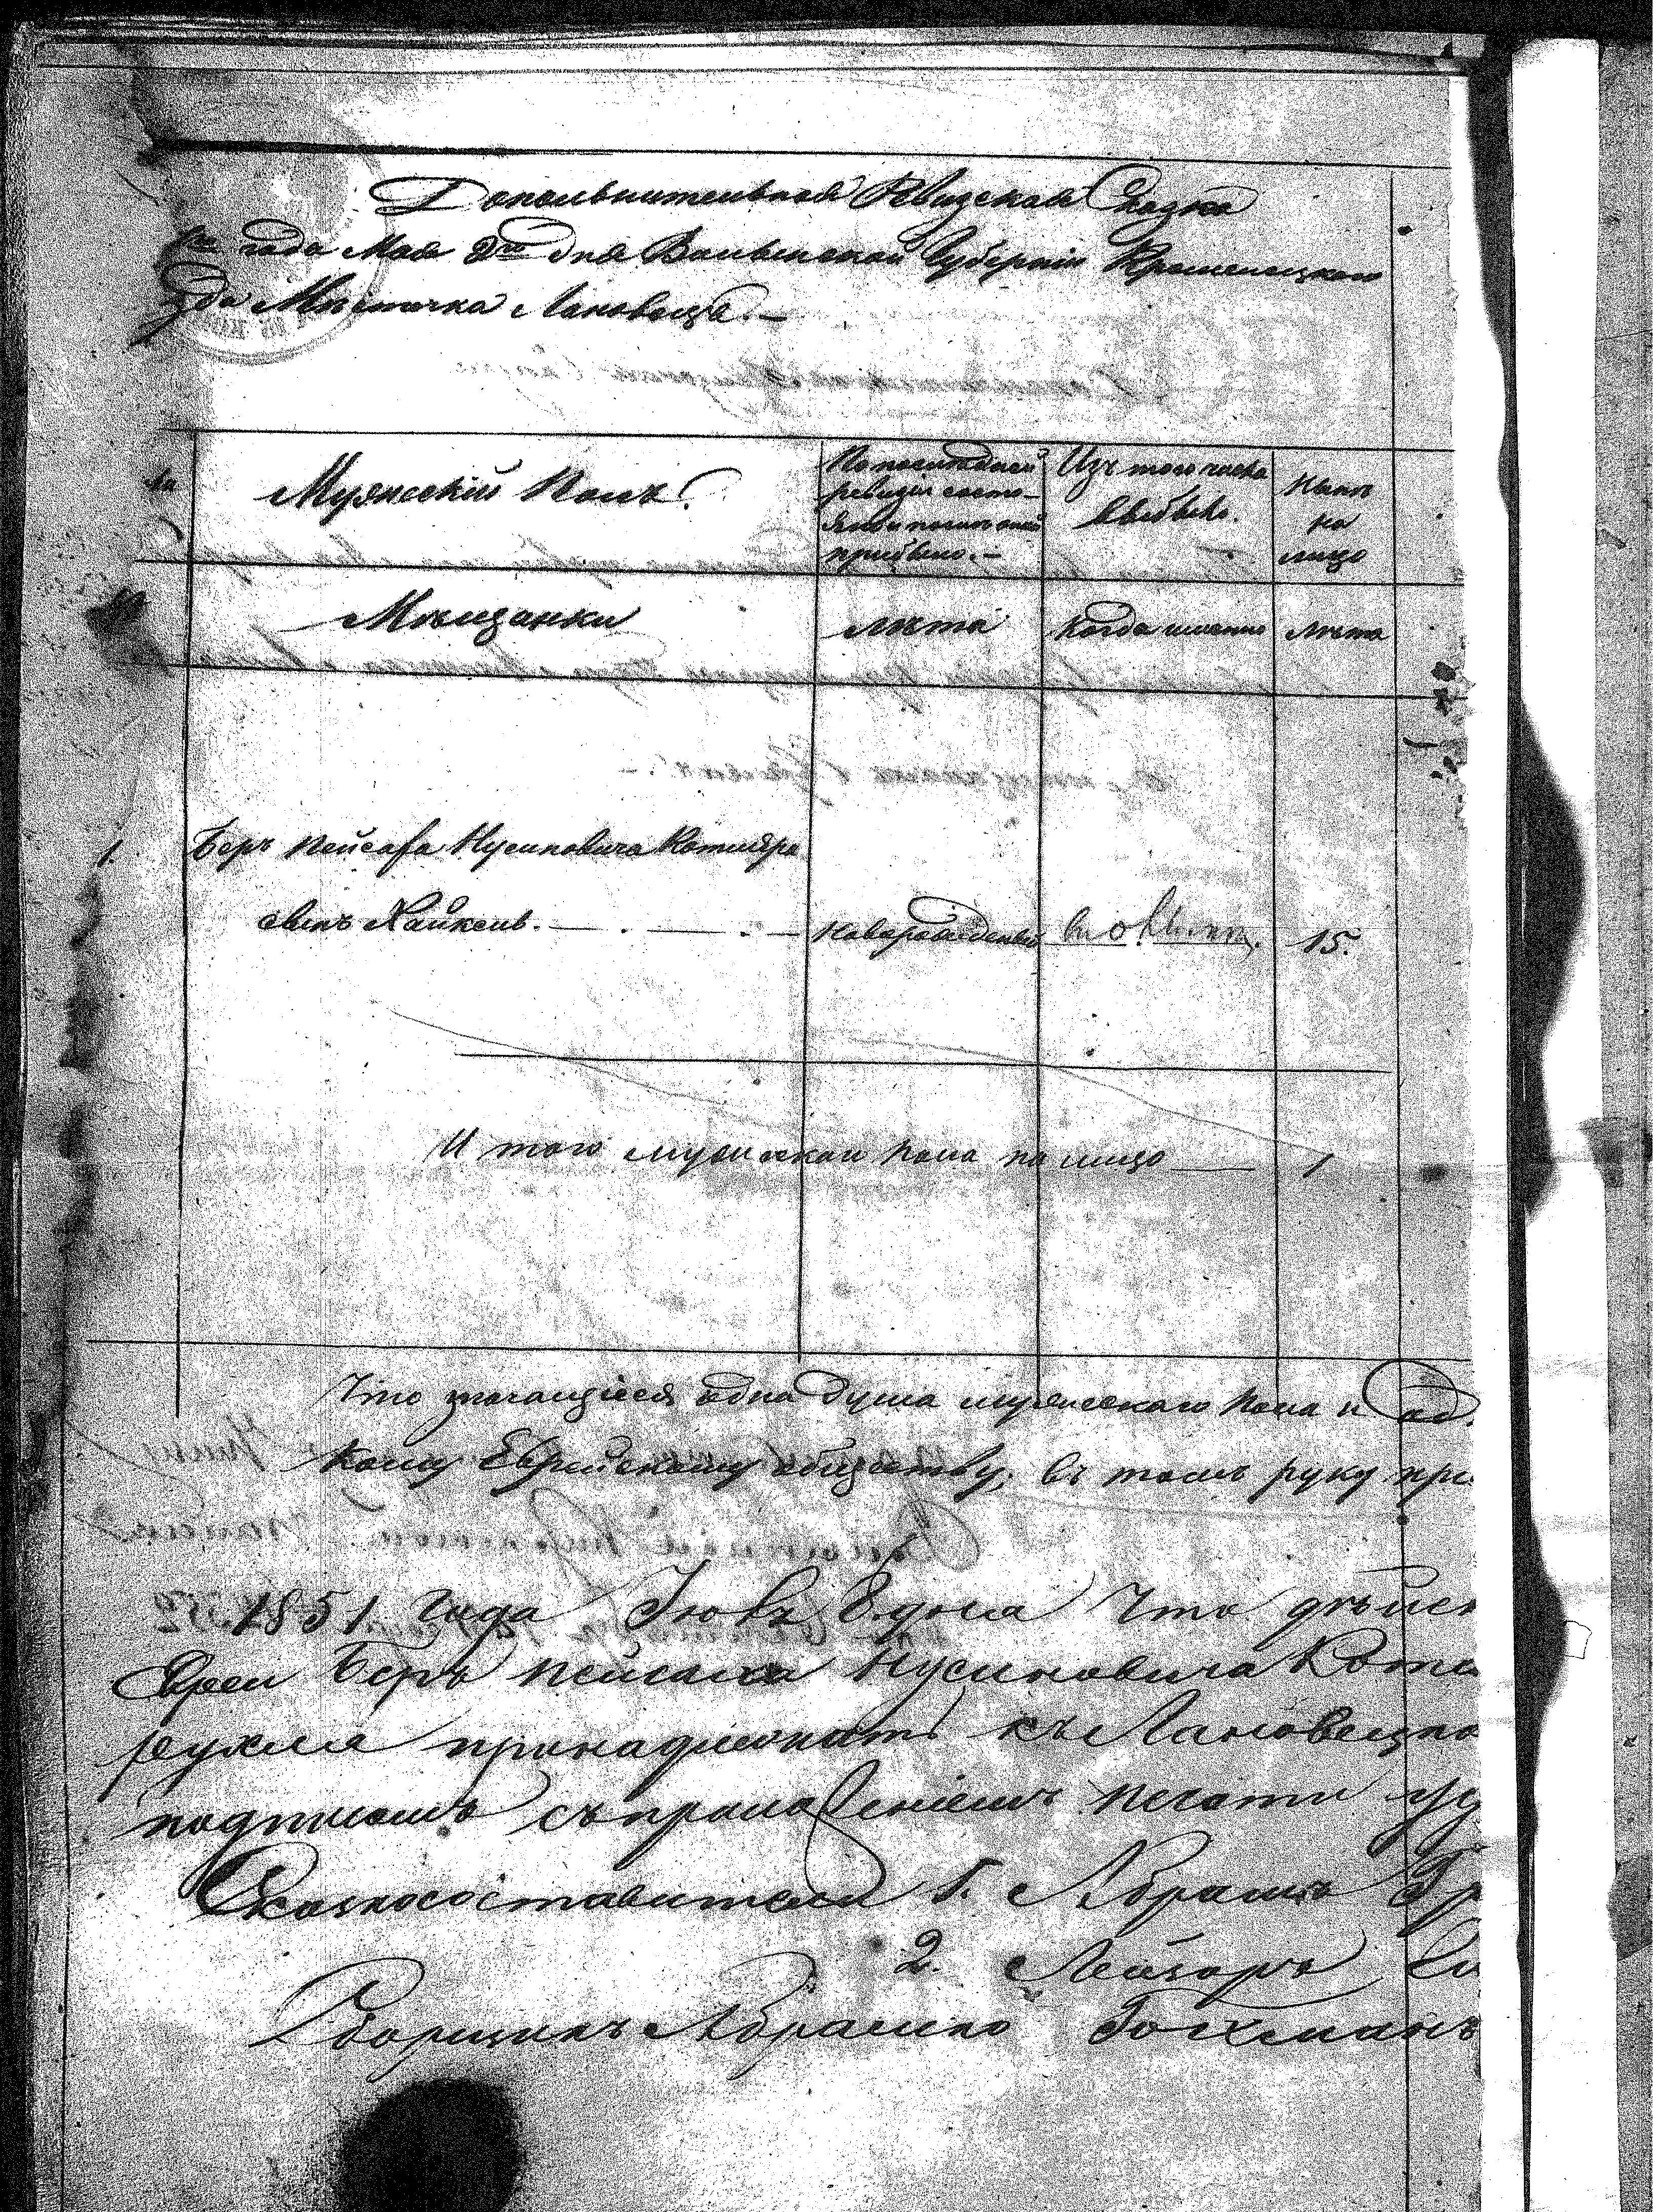 Дополнительная Ревизская Сказка
года Мая 9го дня Волынской Губерніи Кременецкаго
зда Мѣстечка Лановецъ.—
Мужескій Полъ
По послѣдней
ревизіи состо-
яло и послѣ оной
прибыло.—
Изъ того числа
выбыло.
Нынѣ
на
лицо
Мѣщанки
лѣта
когда именно
лѣта
1.
Беръ Пейсаха Нусиновича Котляра
сынъ Хайкель.
новорожденый
15.
И того мужескаго пола на лицо — 1
Что значащіеся одна душа мужескаго пола и од.
кому Еврейскому обществу, въ томъ руку при
1851 года Что дѣйст
Евреи Беръ Пейсаха Нусиновича Котл
принадлежатъ къ Лановецко
подписомъ съ приложеніемъ печати
Сказкосоставители 1. Абрамъ Гр
2. Лейзоръ
Сборщикъ Абрамко Гохманъ